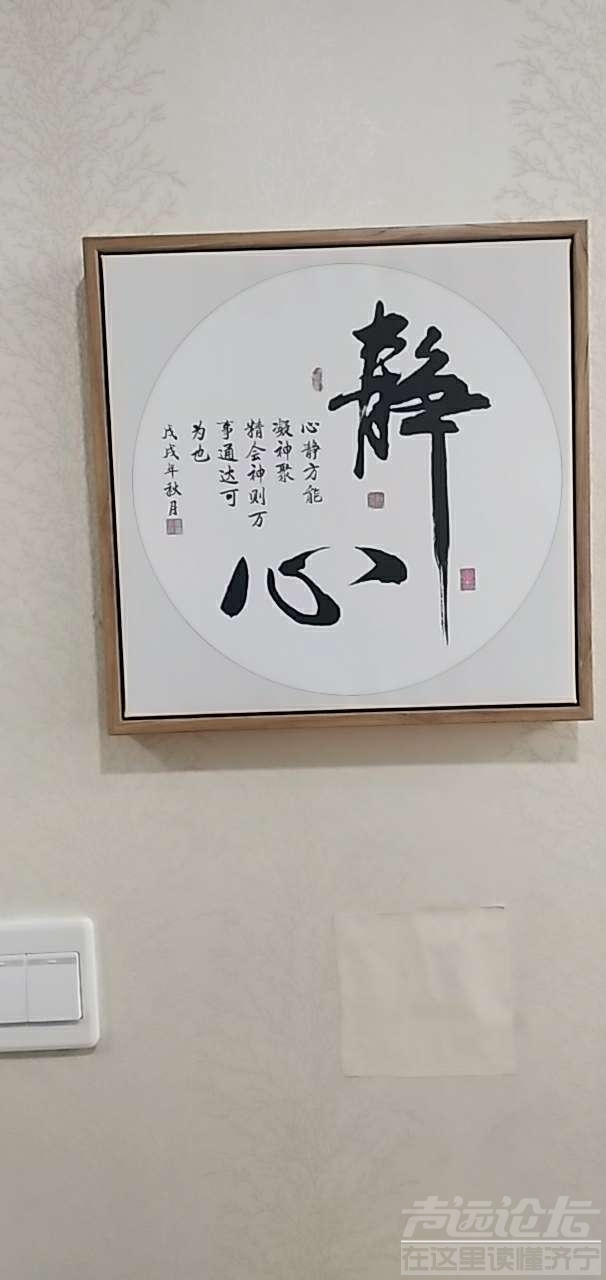 静
心
心静方能
凝神聚
精会神则万
事通达可
为也
戊戌年秋月
声远论坛
在这里读懂济宁